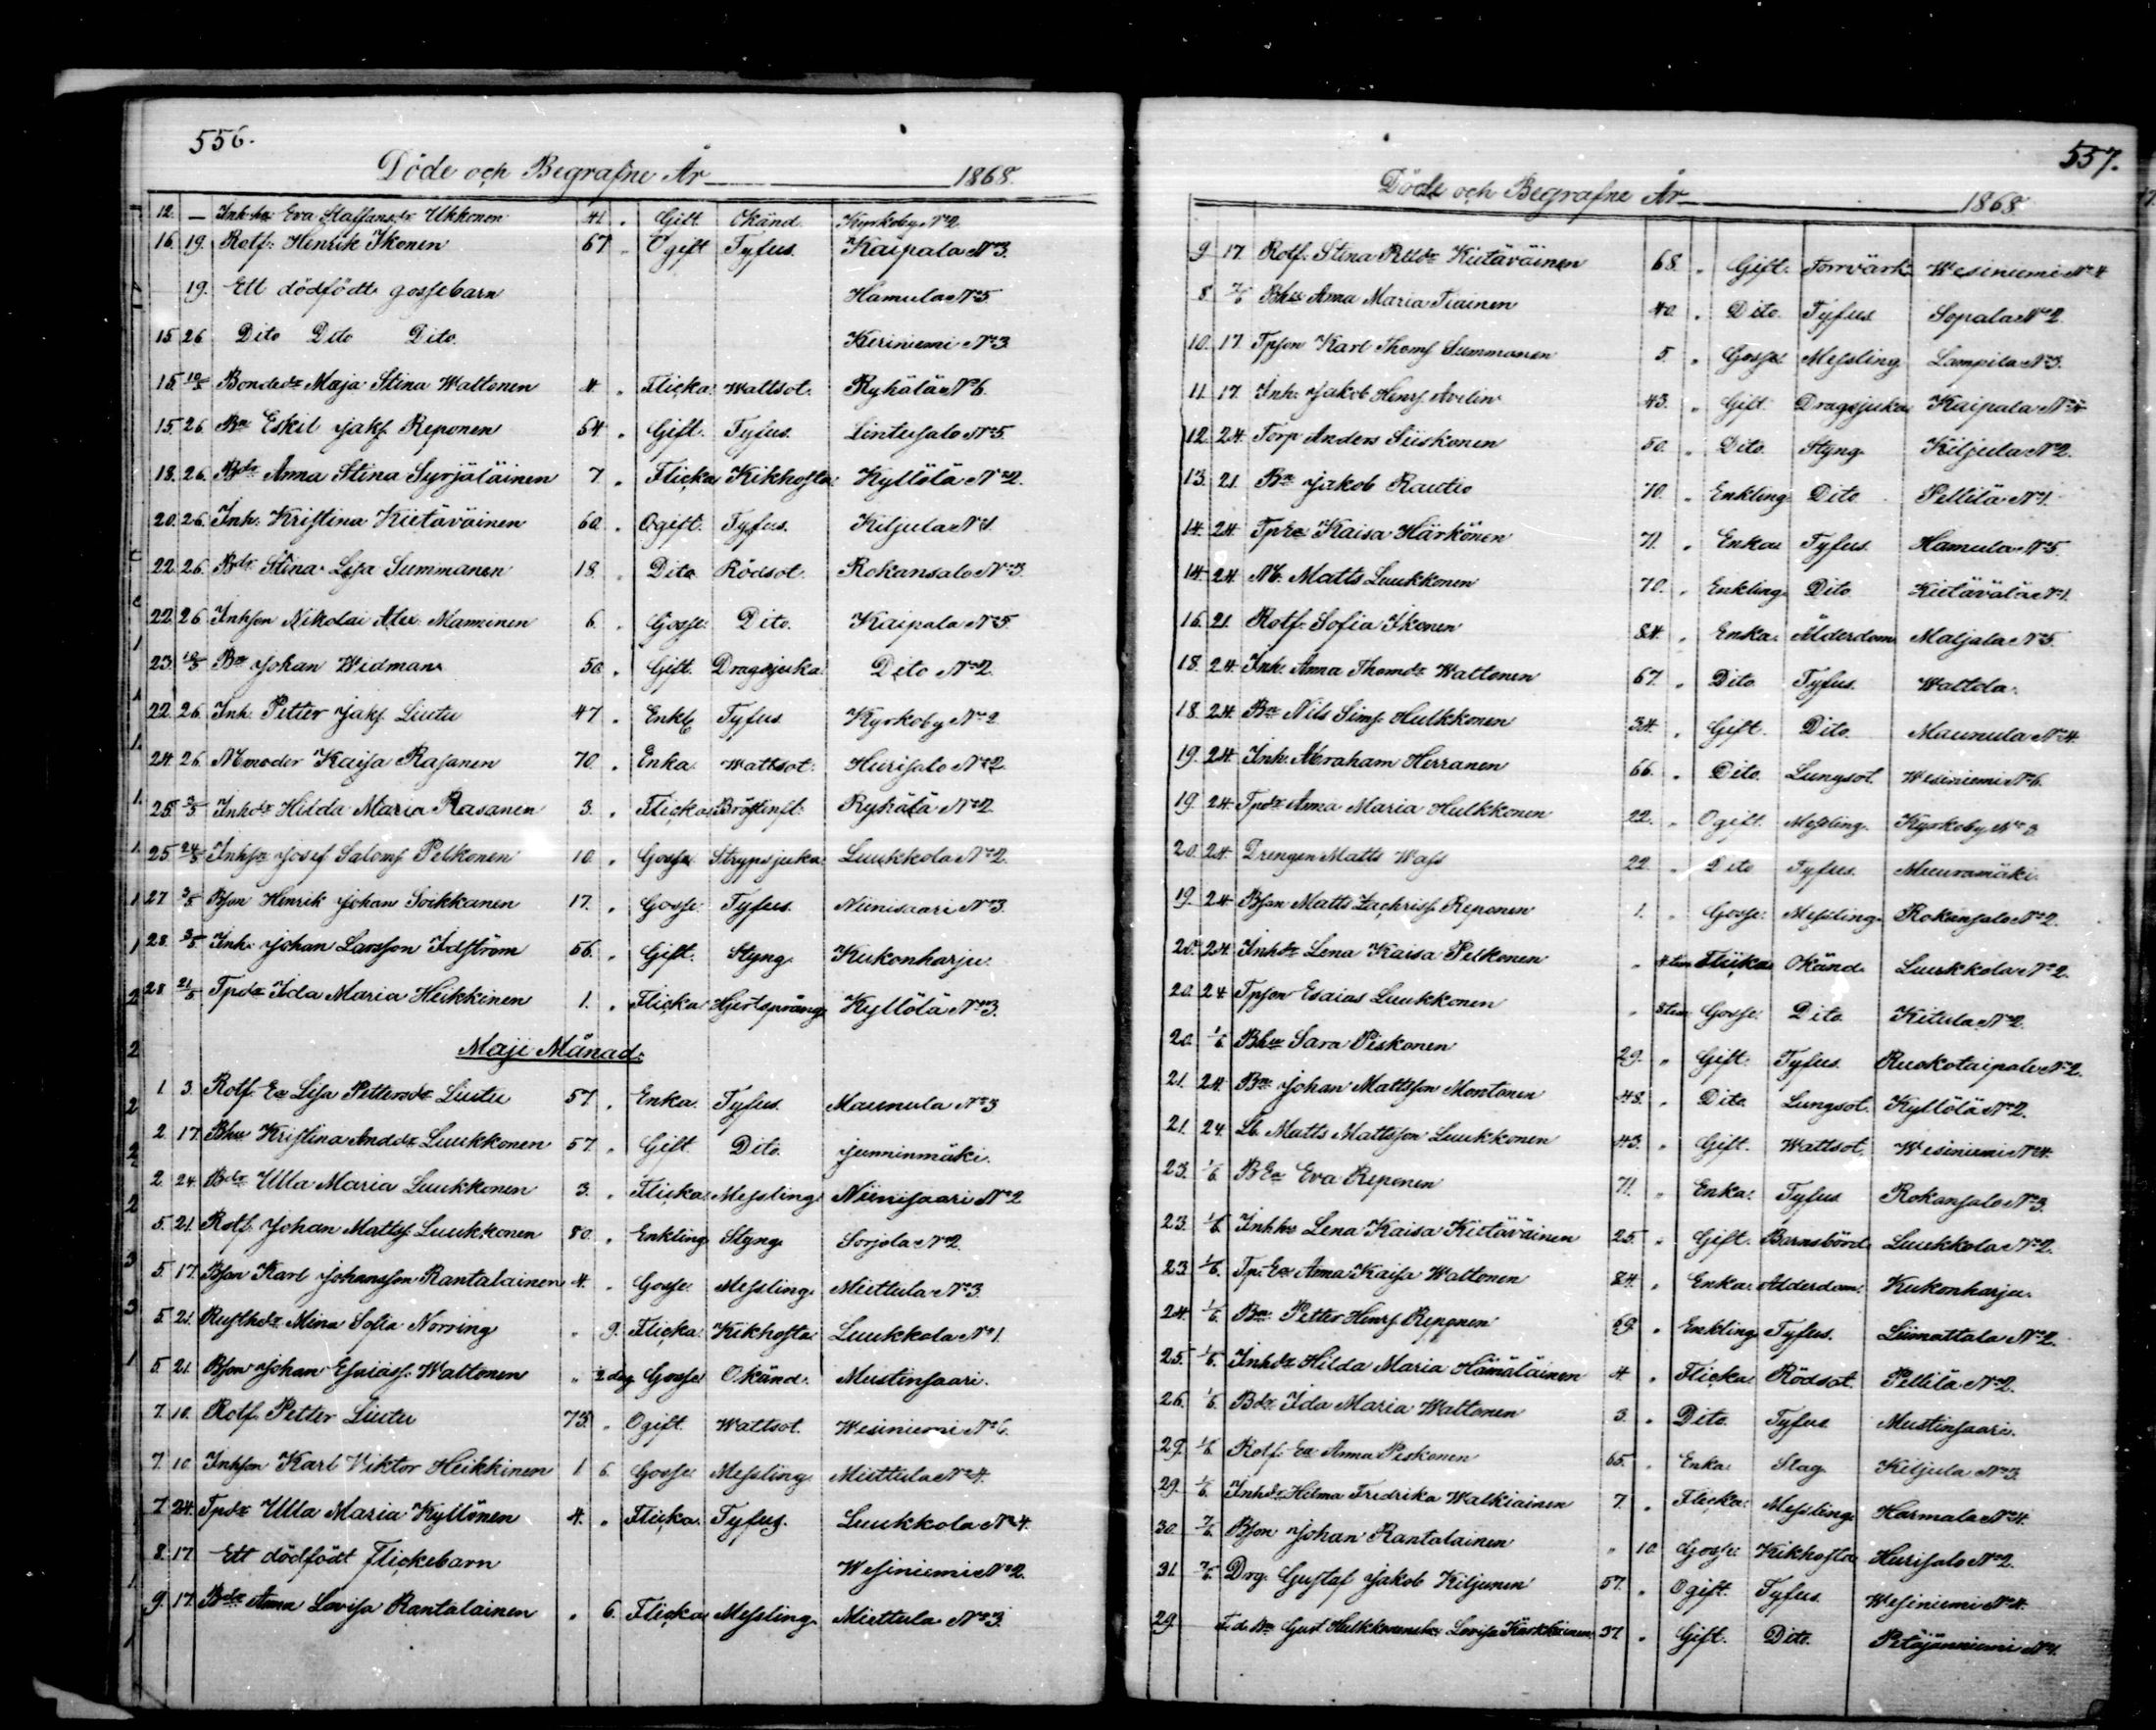 556.
Döde och Begrafne År 1868.
12. — Inh. hu Eva Staffansdr Ukkonen 41. " Gift Okänd Kyrkoby No 2.
16. 19. Rotf. Henrik Ikonen 67 " Ogift Tyfus. Kaipala No 3.
19. Ett dödfödt gossebarn Hamula No 5.
15 26 Dito Dito Dito. Keriniemi No 3
15 10/5 Bondedr Maja Stina Wattonen 4 " Flicka Wattsot. Ryhälä No 6.
15. 26. Bn Eskil Jakss. Reponen 54. " Gift. Tyfus. Lintusalo No 5.
18. 26. Bdr Anna Stina Syrjäläinen 7. " Flicka Kikhosta Kyllölä No 2.
20. 26. Inh. Kristina Kietäväinen 60. " Ogift. Tyfus. Kiljula No 1.
22 26. Bdr Stina Lisa Summanen 18. " Dito Rödsot. Rokansalo No 3.
22 26 Inhson Nikolai Alex. Manninen 6. " Gosse Dito. Kaipala No 5
23. 10/5 Bn Johan Widman 50 " Gift. Dragsjuka Dito No 2
22 26. Inh. Petter Jakss. Liutu 47 " Enkl. Tyfus Kyrkoby No 2
24. 26. Nbmoder Kaisa Rasanen 70. " Enka. Wattsot. Hurisalo No 2.
25. 3/5 Inhdr Hilda Maria Rasanen 3. " Flicka Bröstinfl. Ryhälä No 2.
25 24/5 Inhsn Josef Saloms. Pelkonen 10. " Gosse Strypsjuka Luukkola No 2.
27 3/5 Bson Henrik Johan Soikkanen 17. " Gosse. Tyfus. Niinisaari No 3.
28. 3/5 Inh. Johan Larsson Idström 56. " Gift. Styng. Kukonharju.
28 21/5 Tpdr Ida Maria Heikkinen 1. " Flicka Hjertsprång Kyllölä No 3.
Maji Månad.
1 3. Rotf. Ea Lisa Pettersdr Liutu 57. " Enka. Tyfus. Maunula No 3
2 17. Bhu Kristina Anddr Luukkonen 57. " Gift. Dito. Junninmäki.
2. 24. Bdr Ulla Maria Luukkonen 3. " Flicka Messling Niinisaari No 2
5. 21. Rotf. Johan Matts. Luukkonen 80. " Enkling Styng Sorjola No 2.
5. 17. Bson Karl Johansson Rantalainen 4. " Gosse. Messling Miettula No 3.
5. 21. Rusthdr Mina Sofia Norring " 9. Flicka Kikhosta Luukkola No 1.
5. 21. Bson Johan Esaiass. Wattonen " 2 dag Gosse Okänd. Mustinsaari.
7. 10. Rotf. Petter Liutu 73. " Ogift. Wattsot. Wesiniemi No 6.
7. 10. Inhson Karl Viktor Heikkinen 1 6. Gosse Messling Miettula No 4.
7 24. Tpdr Ulla Maria Kyllönen 4. " Flicka. Tyfus. Luukkola No 4.
8. 17 Ett dödfödt flickebarn Wesiniemi No 2.
9. 17. Bdr Anna Lovisa Rantalainen " 6. Flicka Messling Miettula No 3.
557.
Döde och Begrafne År 1868
9 17. Rotf. Stina Kietäväinen 68. " Gift. Torrvärk Wesiniemi No 4
8 7/6 Bhu Anna Maria Tiainen 40. " Dito. Tyfus Sopala No 2.
10. 17. Tpson Karl Thoms. Summanen 5. " Gosse Messling Lampila No 3.
11. 17. Inh. Jakob Henrs. Avelin 43. " Gift. Dragsjuka Kaipala
12. 24. Torp Anders Siiskonen 50. " Dito. Styng. Kiljula No 2.
13. 21. Bn Jakob Rautio 70. " Enkling Dito Pellilä No 1.
14. 24. Tpea Kaisa Härkönen 71. " Enka Tyfus. Hamula No 5.
14. 24 Nb. Matts Luukkonen 70. " Enkling. Dito. Kietävälä No 1.
16. 21. Rotf. Sofia Ikonen 84. " Enka. Ålderdom Maljala No 5.
18. 24. Inh. Anna Thomdr Wattonen 67. " Dito Tyfus. Wattola.
18. 24. Bn Nils Sims. Hulkkonen 34. " Gift. Dito. Maunula No 4.
19. 24. Inh. Abraham Herranen 66. " Dito. Lungsot. Wesiniemi No 6.
19. 24. Tpdr Anna Maria Hulkkonen 22. " Ogift. Messling. Kyrkoby No 3
20. 24. Drengen Matts Wass 22. " Dito Tyfus. Muuramäki.
19. 24. Bson Matts Zachriss. Reponen 1. " Gosse. Messling. Rokansalo No 2.
20. 24. Inhdr Lena Kaisa Pelkonen " Flicka Okänd Luukkola No 2.
20. 24. Tpson Esaias Luukkonen " Gosse. Dito. Kitula No 2.
20. 1/6. Bhu Sara Piskonen 29. " Gift. Tyfus. Ruokotaipale No 2.
21. 24. Bn Johan Mattsson Montonen 48. " Dito. Lungsot. Kyllölä No 2.
21. 24. Lb. Matts Mattsson Luukkonen 43. " Gift. Wattsot. Wesiniemi No 4.
23. 1/6. B Ea Eva Reponen 71. " Enka. Tyfus Rokansalo No 3.
23. 1/6. Inhhu Lena Kaisa Kietäväinen 25. " Gift. Barnsbörd Luukkola No 2.
23. 1/6. Tp. Ea Anna Kaisa Wattonen 84. " Enka. Alderdom. Kukonharju.
24. 1/6. Bn Petter Henrs. Reponen 69. " Enkling Tyfus. Liimattala No 2.
25. 1/6. Inhdr Hilda Maria Hämäläinen 4. " Flicka Rödsot. Pellilä No 2.
26. 1/6. Bdr Ida Maria Wattonen 3. " Dito. Tyfus Mustinsaari.
29. 1/6. Rotf. Ea Anna Peskonen 65. " Enka. Slag. Kiljula No 3.
29. 1/6. Inhdr Hilma Fredrika Walkiainen 7. " Flicka. Messling Harmala No 4.
30. 7/6. Bson Johan Rantalainen " 10. Gosse Kikhosta Hurisalo No 2.
31. 7/6. Drg. Gustaf Jakob Kiljunen 57. " Ogift. Tyfus. Wesiniemi No 4.
29. F.d. Bn Gust Hulkkonens hu Lovisa Kärkkäinen 37. " Gift. Dito. Petäjänniemi No 1.